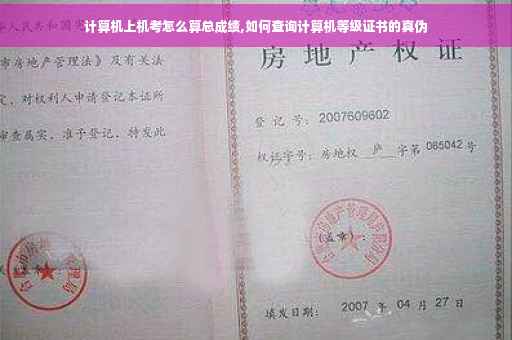 计算机上机考怎么算总成绩,如何查询计算机等级证书的真伪
华人民共和国宪
市房地产管理法》及有关法
定，对权利人申请登记本证所
审查属实，准予登记，特发此
房地产权证
登记号：2007609602
权证字号：房地权 庐 字第 065042 号
(盖章)：
填发日期： 2007 年 04 月 27 日